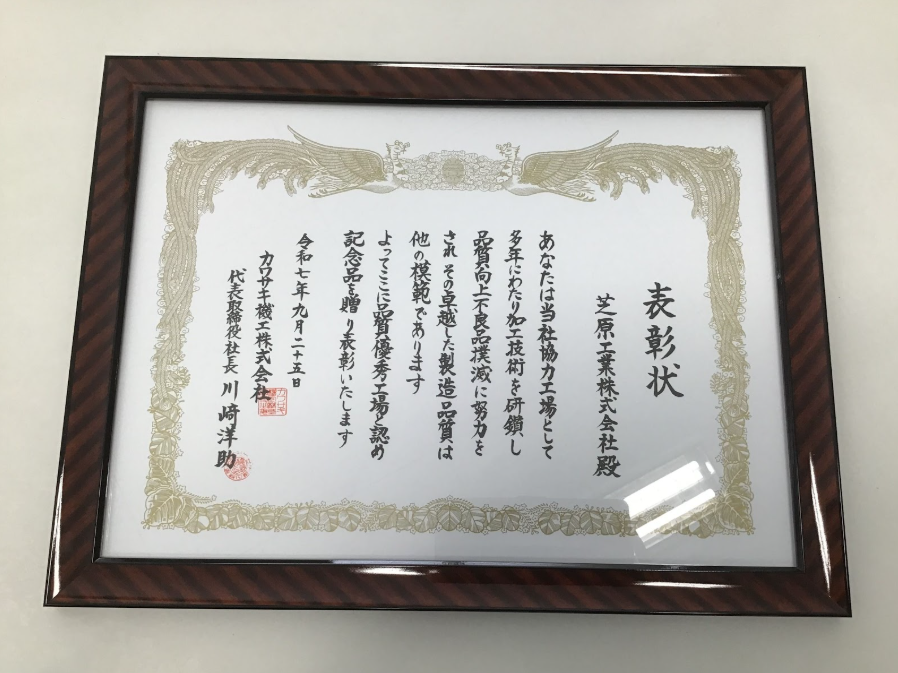 表彰状
芝原工業株式会社殿
あなたは当社協力工場として
多年にわたり加工技術を研鎖し
品質向上不良品撲滅に努力を
され その卓越した製造品質は
他の模範であります
よってここに品質優秀工場と認め
記念品を贈り表彰いたします
令和七年九月二十五日
カワサキ機工株式会社
代表取締役社長 川﨑洋助